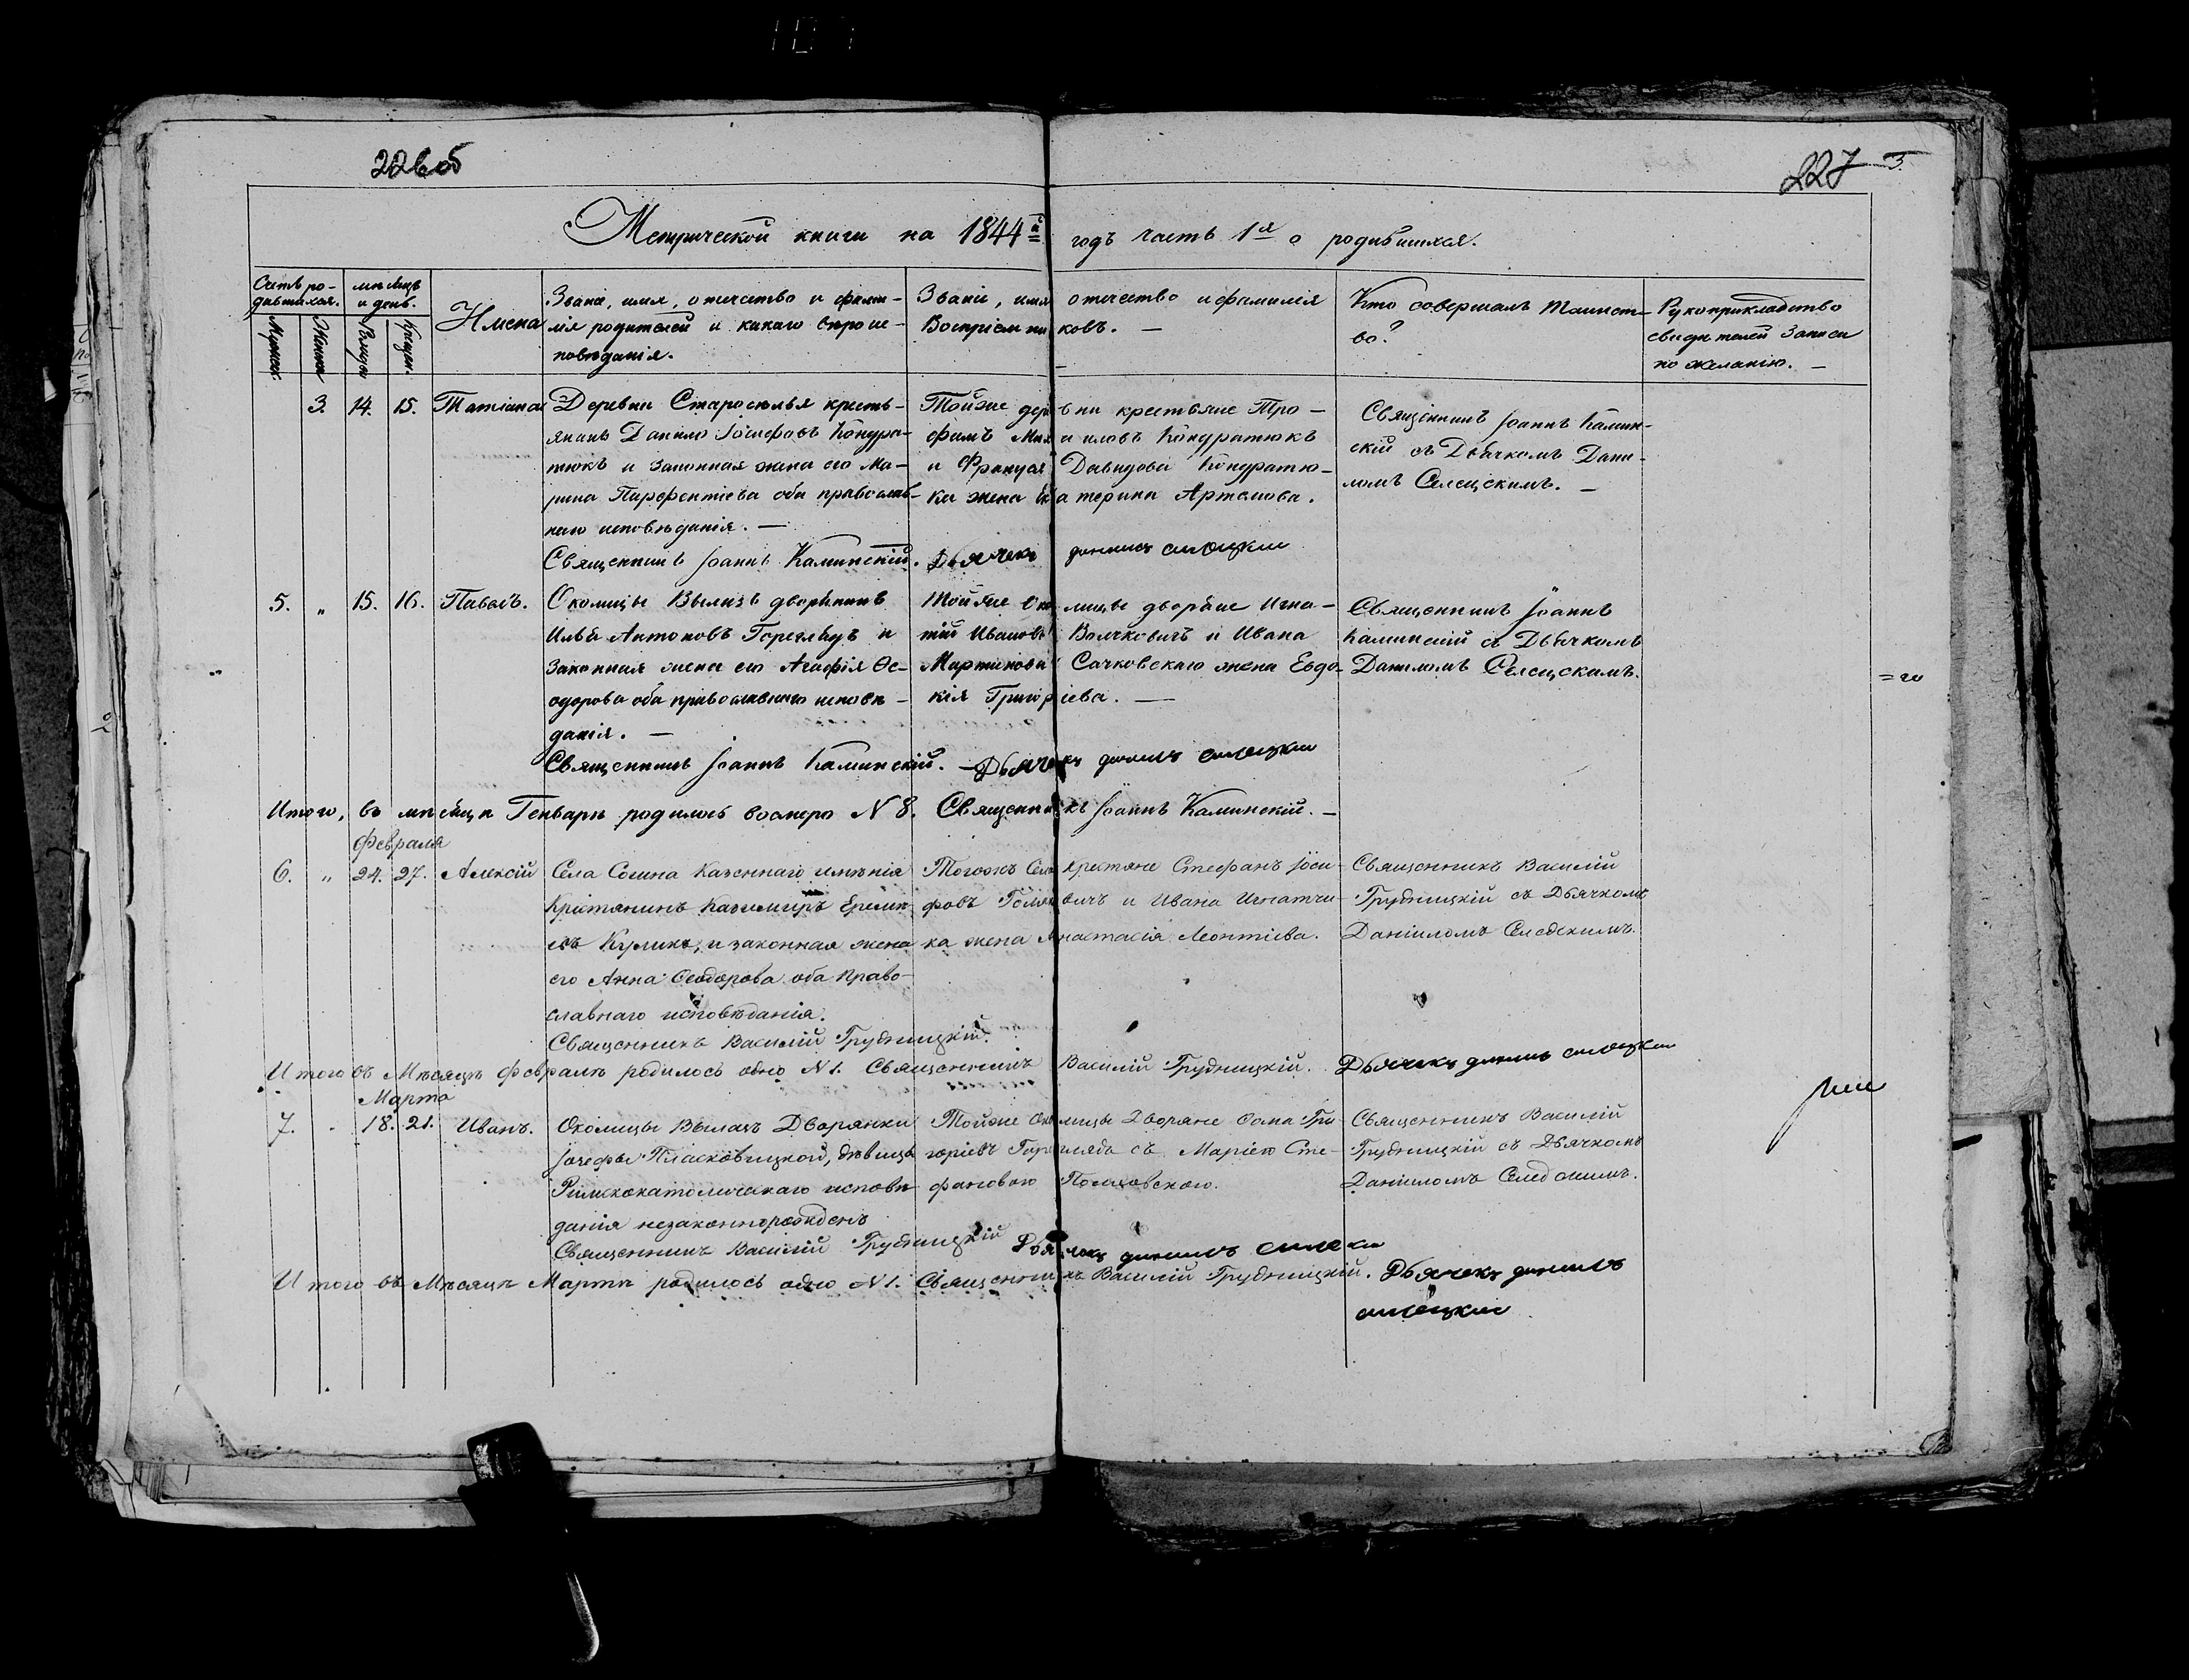 226об
227
3.
Метрической книги на 1844й годъ часть 1я о родившихся.
Счетъ ро-
дившихся.
мѣсяцъ
и день.
Мужеск.
Женска
Рожден
Крещен.
Имена
Званіе, имя, отчество и фами-
лія родителей и какаго вѣроис-
повѣданія.
Званіе, имя отчество и фамилія
Воспріемниковъ. —
Кто совершалъ таинст-
во?
Рукоприкладство
свидѣтелей записи
по желанію. —
3. 14. 15. Татіана
Деревни Староселья кресть-
янинъ Данило Іосифовъ Кондра-
тюкъ и законная жена его Ма-
рина Парфентіева оба православ-
наго исповѣданія. —
Священникъ Іоаннъ Каминскій. Дьячекъ данилъ
Тойже деревни крестьяне Тро-
фимъ Михаиловъ Кондратюкъ
и Давидова Кондратю-
ка жена Екатерина Артемова.
Священникъ Іоаннъ Камин-
скій съ Дьячкомъ Дани-
ломъ Селецскимъ. —
5. „ 15. 16. Павелъ.
Околицы Вылазъ дворянинъ
Илья Антоновъ Гореглядъ и
законная жена его Агафія Ѳе-
одорова оба православнаго исповѣ-
данія. —
Священникъ Іоаннъ Каминскій. — Дьячекъ данилъ
Тойже околицы дворяне Игна-
тій Ивановъ Волчковичъ и Ивана
Мартинова Сачковскаго жена Евдо-
кія Григоріева. —
Священникъ Іоаннъ
Каминскій съ Дьячкомъ
Даниломъ Селецскимъ.
Итого, въ мѣсяцѣ Генварѣ родилось восмеро N 8. Священникъ Іоаннъ Каминскій. —
Февраля
6. „ 24. 27. Алексій
Села Сошна Казеннаго имѣнія
Крестянинъ Казимиръ
Куликъ, и законная жена
его Анна Ѳеодорова оба право-
славнаго исповѣданія.
Священникъ Василій Грудницкій.
Тогожъ Села Крестяне Стефанъ Іоси-
фовъ и Ивана Игнатчи-
ка жена Анастасія Леонтіева.
Священникъ Василій
Грудницкій съ Дьячкомъ
Даніиломъ
Итого въ Мѣсяцѣ Февралѣ родилось одно N 1. Священникъ Василій Грудницкій. Дьячекъ данилъ
Марта
7. 18. 21. Иванъ.
Околицы Вылазъ Дворянки
Іозефы Пласковицкой, дѣвицы
Римскокатолическаго исповѣ
данія незаконнорожденъ
Священникъ Василій Грудницкій Дьячекъ данилъ
Тойже Околицы Дворяне Ѳома Гри-
горіевъ Гореглядъ съ Маріею Сте-
фановою
Священникъ Василій
Грудницкій съ Дьячкомъ
Даніиломъ
Итого въ Мѣсяцѣ Мартѣ родилось одно N 1. Священникъ Василій Грудницкій. Дьячекъ данилъ